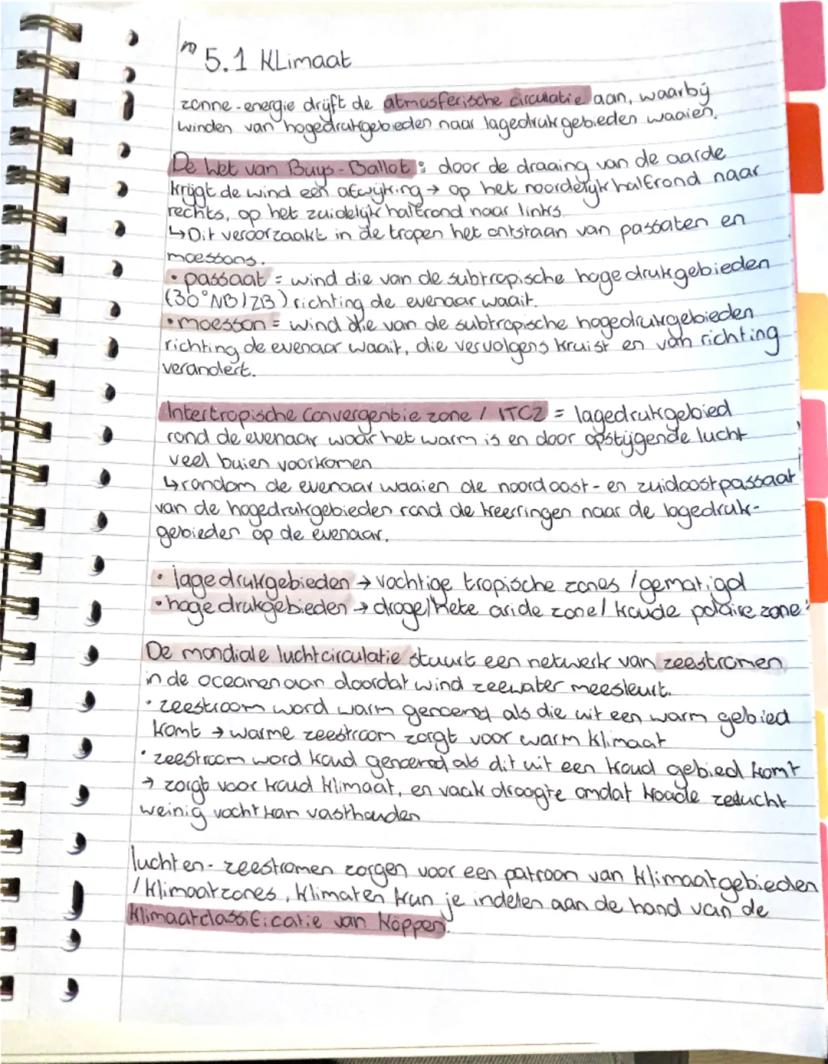 5.1 Klimaat
zonne-energie drijft de atmosferische circulatie aan, waarbij
winden van hogedrukgebieden naar lagedrukgebieden waaien.
De Wet van Buys-Ballot: door de draaing van de aarde
krijgt de wind een afwijking → op het noordelijk halfrond naar
rechts, op het zuidelijk halfrond naar links.
↳ Dit veroorzaakt in de tropen het ontstaan van passaten en
moessons.
• passaat = wind die van de subtropische hoge drukgebieden
(30° NB/ZB) richting de evenaar waait.
• moesson = wind die van de subtropische hogedrukgebieden
richting de evenaar waait, die vervolgens kruist en van richting
verandert.
Intertropische Convergentie zone / ITCZ = lagedrukgebied
rond de evenaar waar het warm is en door opstijgende lucht
veel buien voorkomen
↳ rondom de evenaar waaien de noordoost- en zuidoostpassaat
van de hogedrukgebieden rond de keerringen naar de lagedruk-
gebieden op de evenaar.
• lage drukgebieden → vochtige tropische zones / gematigd
• hoge drukgebieden → droge/hete aride zone / koude polaire zone
De mondiale luchtcirculatie stuurt een netwerk van zeestromen
in de oceanen aan doordat wind zeewater meesleurt.
• zeestroom word warm genoemd als die uit een warm gebied
komt → warme zeestroom zorgt voor warm klimaat
• zeestroom word koud genoemd als dit uit een koud gebied komt
→ zorgt voor koud klimaat, en vaak droogte omdat koude zeelucht
weinig vocht kan vasthouden
lucht en- zeestromen zorgen voor een patroon van klimaatgebieden
/ klimaatzones. Klimaten kun je indelen aan de hand van de
klimaatclassificatie van Köppen.